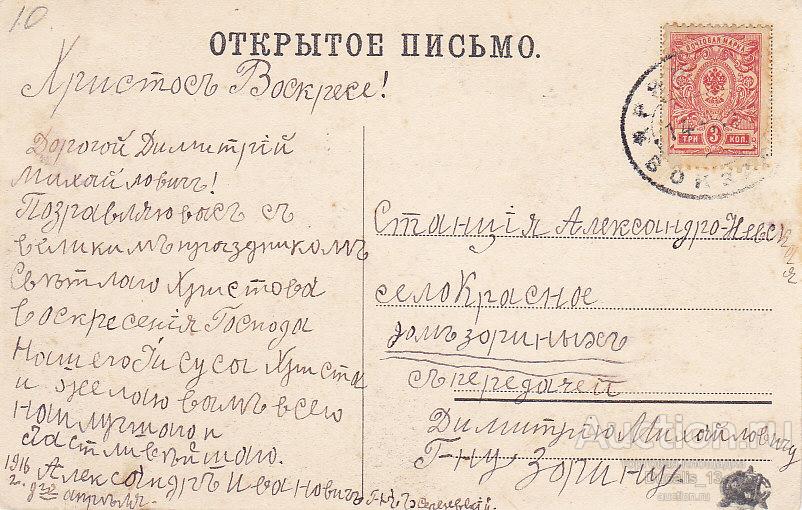 10
ОТКРЫТОЕ ПИСЬМО.
Христосъ Воскресе!
Дорогой Димитрій
Михайловичъ!
Поздравляю васъ съ
великимъ праздникомъ
Свѣтлаго Христова
воскресенія Господа
Нашего Іисуса Христа
и желаю вамъ всего
наилучшаго и
счастливѣйшаго.
1916
2.
апрѣля.
Александръ Ивановичъ
ПОЧТОВАЯ МАРКА
ТРИ 3 КОП.
14
ВОКЗ
Станція Александро-Невская
село Красное
домъ Зориныхъ
съ передачей
Димитрію Михайловичу
Г-ну Зорину.
Auction.ru
auction.ru